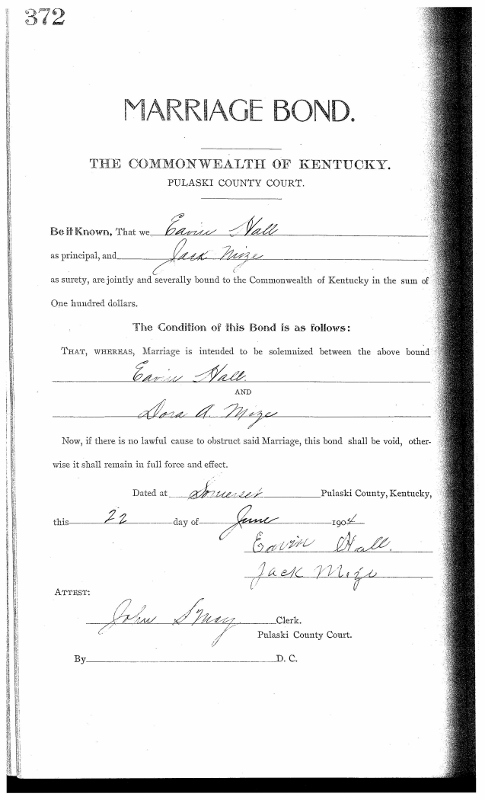 372
MARRIAGE BOND.
THE COMMONWEALTH OF KENTUCKY.
PULASKI COUNTY COURT.
Be it Known, That we Eavin Hall
as principal, and Jack Mize
as surety, are jointly and severally bound to the Commonwealth of Kentucky in the sum of
One hundred dollars.
The Condition of this Bond is as follows:
THAT, WHEREAS, Marriage is intended to be solemnized between the above bound
Eavin Hall.
AND
Dora A. Mize
Now, if there is no lawful cause to obstruct said Marriage, this bond shall be void, other-
wise it shall remain in full force and effect.
Dated at Somerset Pulaski County, Kentucky,
this 22 day of June 1904
Eavin Hall.
Jack Mize
ATTEST:
John S May Clerk.
Pulaski County Court.
By D. C.